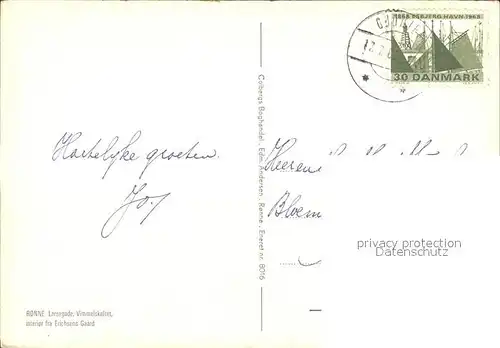 1868 ESBJERG HAVN 1968
30 DANMARK
Hartelijke groeten.
Joz
Heeren
Bloem
privacy protection
Datenschutz
Colbergs Boghandel. Edm. Andersen, Rønne. Eneret nr. 8016
RØNNE Laregade, Vimmelskaftet,
interiør fra Erichsens Gaard